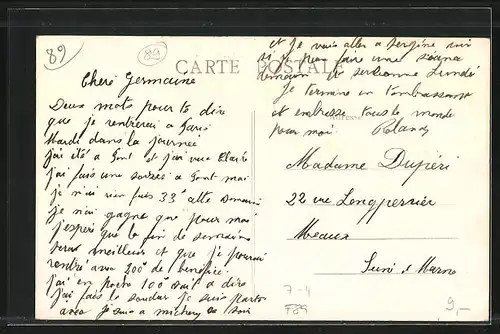 89
89
CARTE POSTALE
Cheré Germaine
Deux mots pour te dire
que je rentrerai a Paris
Mardi dans la journée
j'ai été a Pont et j'ai vue Claire
j'ai fais une soirée a Pont mai
je n'ai rien fais 33 cette
je n'ai gagné que pour moi
j'espere que la fin de
sera meilleurs et que je pourrai
rentré avec 200 de bénéfice
j'ai en poche 100 soit a dire
j'ai fais le je suis
avec je a michery ce soir
et je vais aller a sergine
si je peu faire une séance
demain et Lundi
je termine en t'embrassant
et embrasse tous le monde
pour moi Roland
Madame Dupieri
22 rue Longperrier
Meaux
Seine & Marne
7-4
F89
9,-